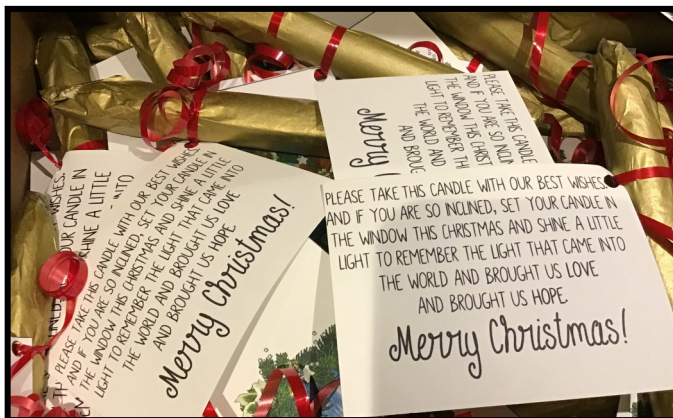 PLEASE TAKE THIS CANDLE WITH OUR BEST WISHES.
AND IF YOU ARE SO INCLINED, SET YOUR CANDLE IN
THE WINDOW THIS CHRISTMAS AND SHINE A LITTLE
LIGHT TO REMEMBER THE LIGHT THAT CAME INTO
THE WORLD AND BROUGHT US LOVE
AND BROUGHT US HOPE.
Merry Christmas!
PLEASE TAKE THIS CANDLE WITH OUR BEST WISHES.
AND IF YOU ARE SO INCLINED, SET YOUR CANDLE IN
THE WINDOW THIS CHRISTMAS AND SHINE A LITTLE
LIGHT TO REMEMBER THE LIGHT THAT CAME INTO
THE WORLD AND BROUGHT US LOVE
AND BROUGHT US HOPE
Merry Christmas!
PLEASE TAKE THIS CANDLE
AND IF YOU ARE SO
THE WINDOW THIS
LIGHT TO REMEMBER
THE WORLD AND
AND
Merry
WISHES.
OUR CANDLE IN
SHINE A LITTLE
INTO